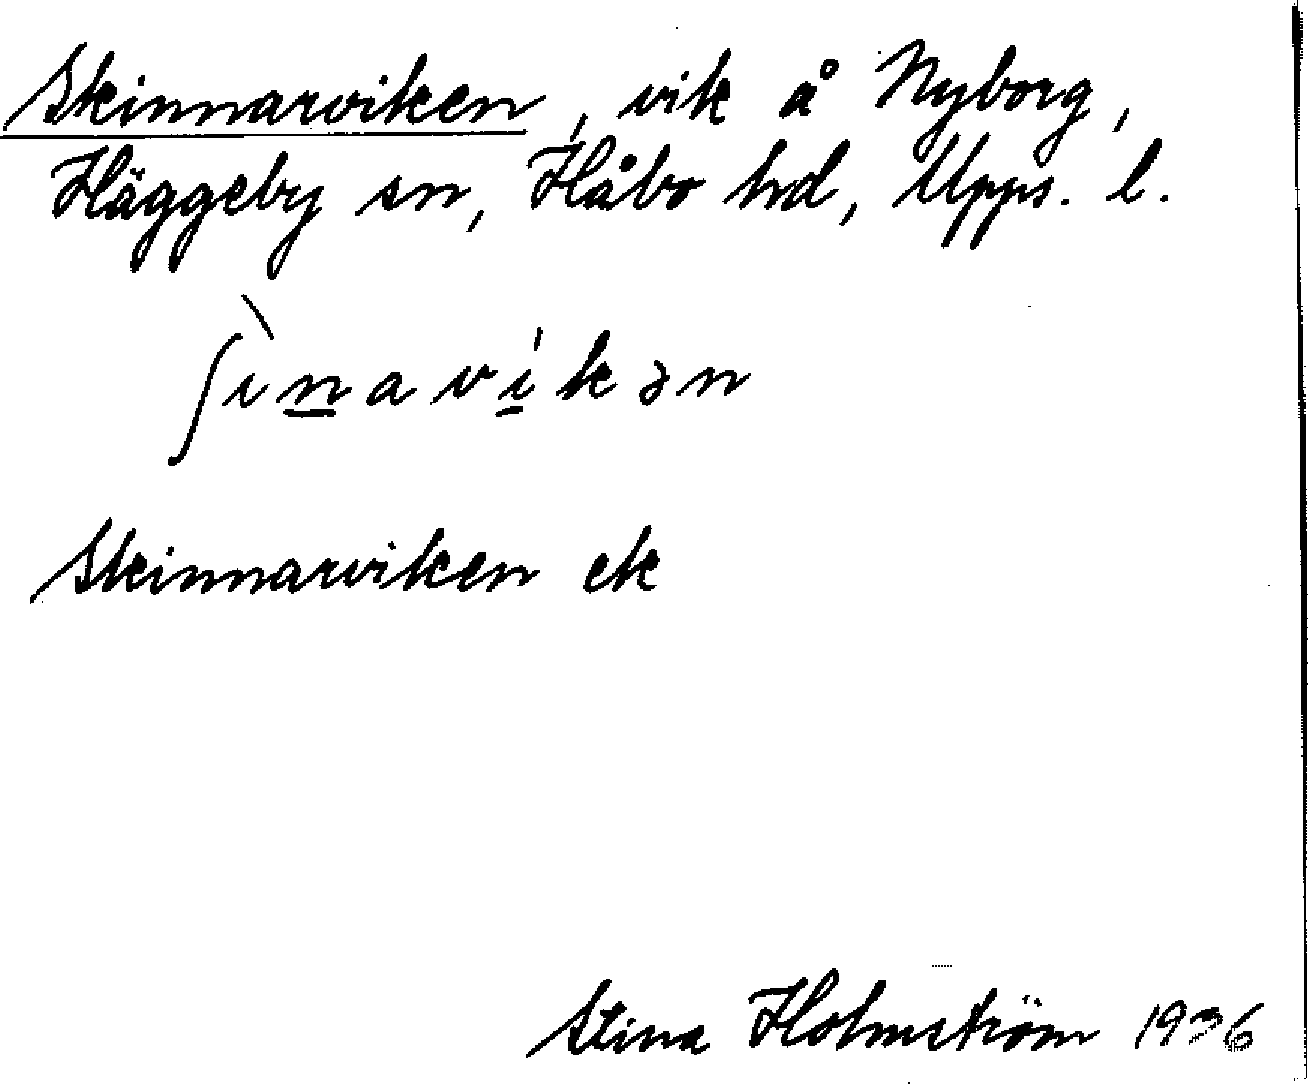 Skinnarviken, vik å Nyborg,
Häggeby sn, Håbo hd, Upps. l.
ʃìn̲avi̲̍kən
Skinnarviken ek
Stina Holmström 1936